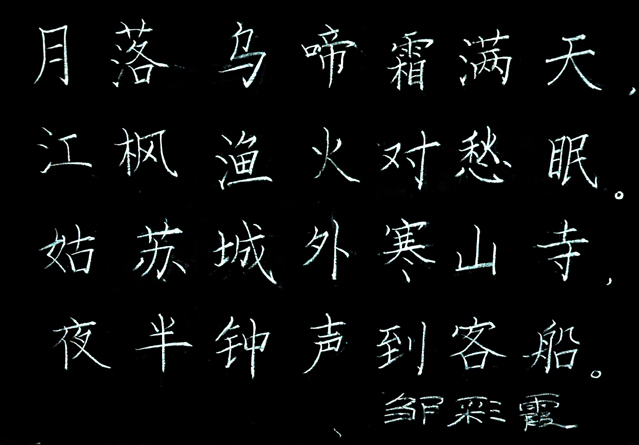 月落乌啼霜满天，
江枫渔火对愁眠。
姑苏城外寒山寺，
夜半钟声到客船。
邹彩霞